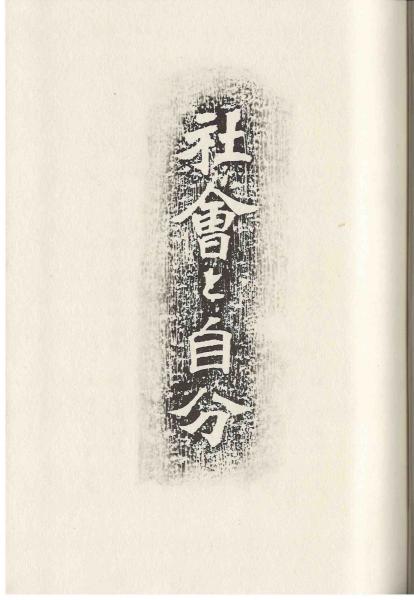 社會と自分